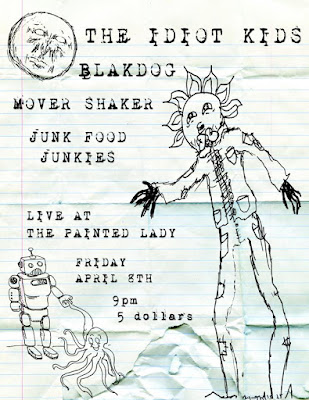 THE IDIOT KIDS
BLAKDOG
MOVER SHAKER
JUNK FOOD
JUNKIES
LIVE AT
THE PAINTED LADY
FRIDAY
APRIL 8TH
9pm
5 dollars